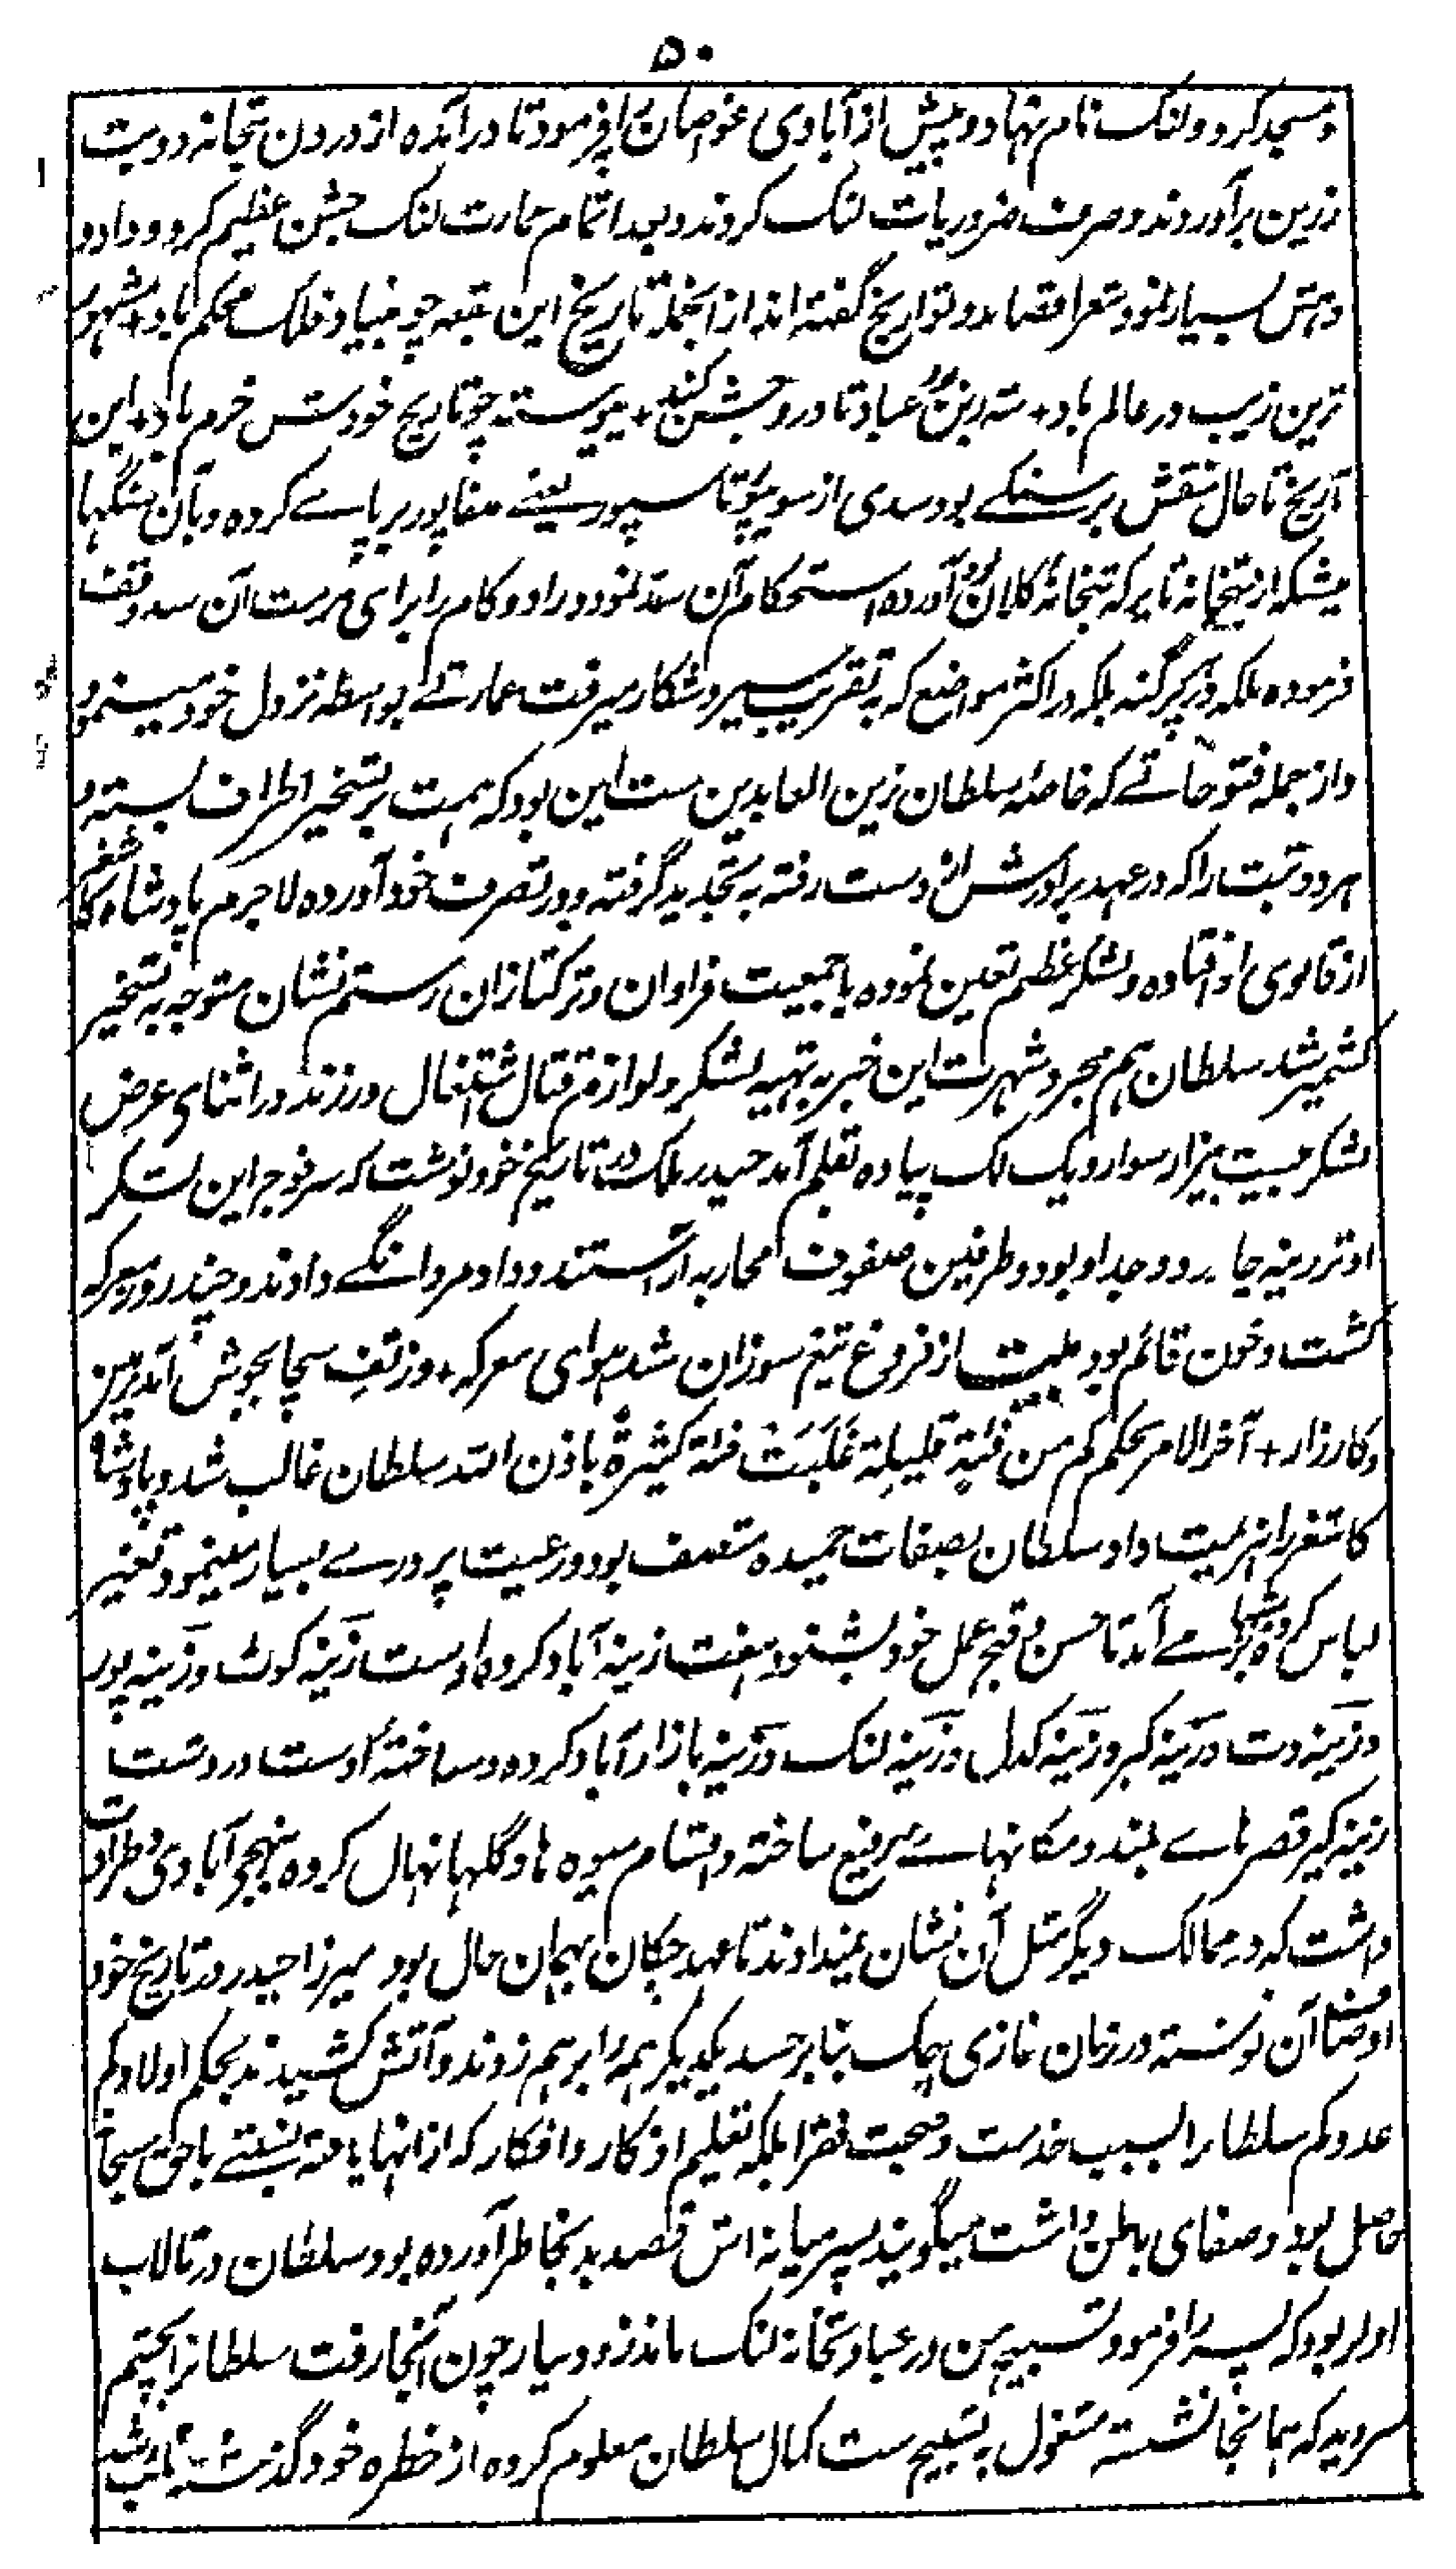 ۵۰
و مسجد کرد و لنک نام نهاد و پیش از آبادی غواصان را فرمود تا در آمده از درون بتخانه دو بت
زرین برآوردند و صرف ضروریات لنک کردند و بعد اتمام عمارت لنک جشن عظیم کرد و داد و
دهش بسیار نمود شعرا قصاید و تواریخ گفته اند از انجمله تاریخ این بقعه چو بنیاد فلک محکم باد + مشهور
ترین زیب در عالم باد + شه زین عباد تا درو جشن کند + پیوسته چو تاریخ خودش خرم باد + این
تاریخ تا حال منقش بر سنگے بود سدی از سویپور تا سپور یعنے صفاپور برپاے کرده و بآن سنگها
میشکه از بتخانه تاپر که بتخانه کلان بود آورده استحکام آن سد نمود و راد و کام را برای مرمت آن سد وقف
فرموده بلکه در هر پرگنه بلکه در اکثر مواضع که به تقریب سیر و شکار میرفت عمارتے بواسطه نزول خود مینمود
و از جمله فتوحاتے که خاصه سلطان زین العابدین ست این بود که همت بر تسخیر اطراف بسته و
هر دو تبت را که در عهد برادرش از دست رفته به تجدید گرفته و در تصرف خود آورده لاجرم پادشاه کاشغر
از قابوی او افتاده و لشکر عظیم تعین نموده با جمعیت فراوان و ترکتازان رستم نشان متوجه به تسخیر
کشمیر شد سلطان هم بمجرد شهرت این خبر به تهیه لشکر و لوازم قتال اشتغال ورزند در اثنای عرض
لشکر بیست هزار سوار و یک لک پیاده بقلم آمد حیدر ملک در تاریخ خود نوشت که سر فوج این لشکر
اوتر رینه چادرو جد او بود و طرفین صفوف محاربه آراستند و داد مردانگے دادند و چند روز معرکه
کشت و خون قائم بود بیت از فروغ تیغ سوزان شد هوای معرکه + وز تف هیجا بجوش آمد زمین
و کارزار + آخرالامر بحکم کم من فئة قلیلة غلبت فئة کثیرة باذن الله سلطان غالب شد و پادشاه
کاشغر را هزیمت داد سلطان بصفات حمیده متصف بود و رعیت پرورے بسیار مینمود و تغیر
لباس کرده شبها برمے آمد تا حسن و قبح عمل خود بشنود هفت زینه آباد کرده اوست زینه کوٹ و زینه پور
و زینه وت و زینه گیر و زینه کدل و زینه لنک و زینه بازار آباد کرده و ساخته اوست در دشت
زینه گیر قصرهاے بلند و مکانهاے رفیع ساخته و اقسام میوه ها و گلها نهال کرده بنهجی آبادی و طراوت
داشت که در ممالک دیگر مثل آن نشان نمیدادند تا عهد چکان بهمان حال بود میرزا حیدر در تاریخ خود
اوصاف آن نوشته در زمان غازی چک بنابر حسد یکدیگر همه را برهم زدند و آتش کشیدند بحکم اولادکم
عدوکم سلطانرا بسبب خدمت و صحبت فقرا بلکه تعلیم اذکار و افکار که از انها یافته نسبتے باحق سبحانه
حاصل بود و صفای باطن داشت میگویند پسر میانه اش قصد بد بخاطر آورده بود سلطان در تالاب
اولر بود که پسر را فرمود تسبیح من در عبادتخانه لنک مانده زود بیار چون آنجا رفت سلطانرا بچشم
سر دید که همانجا نشسته مشغول به تسبیح ست کمال سلطان معلوم کرده از خطره خود گذشته تائب شد